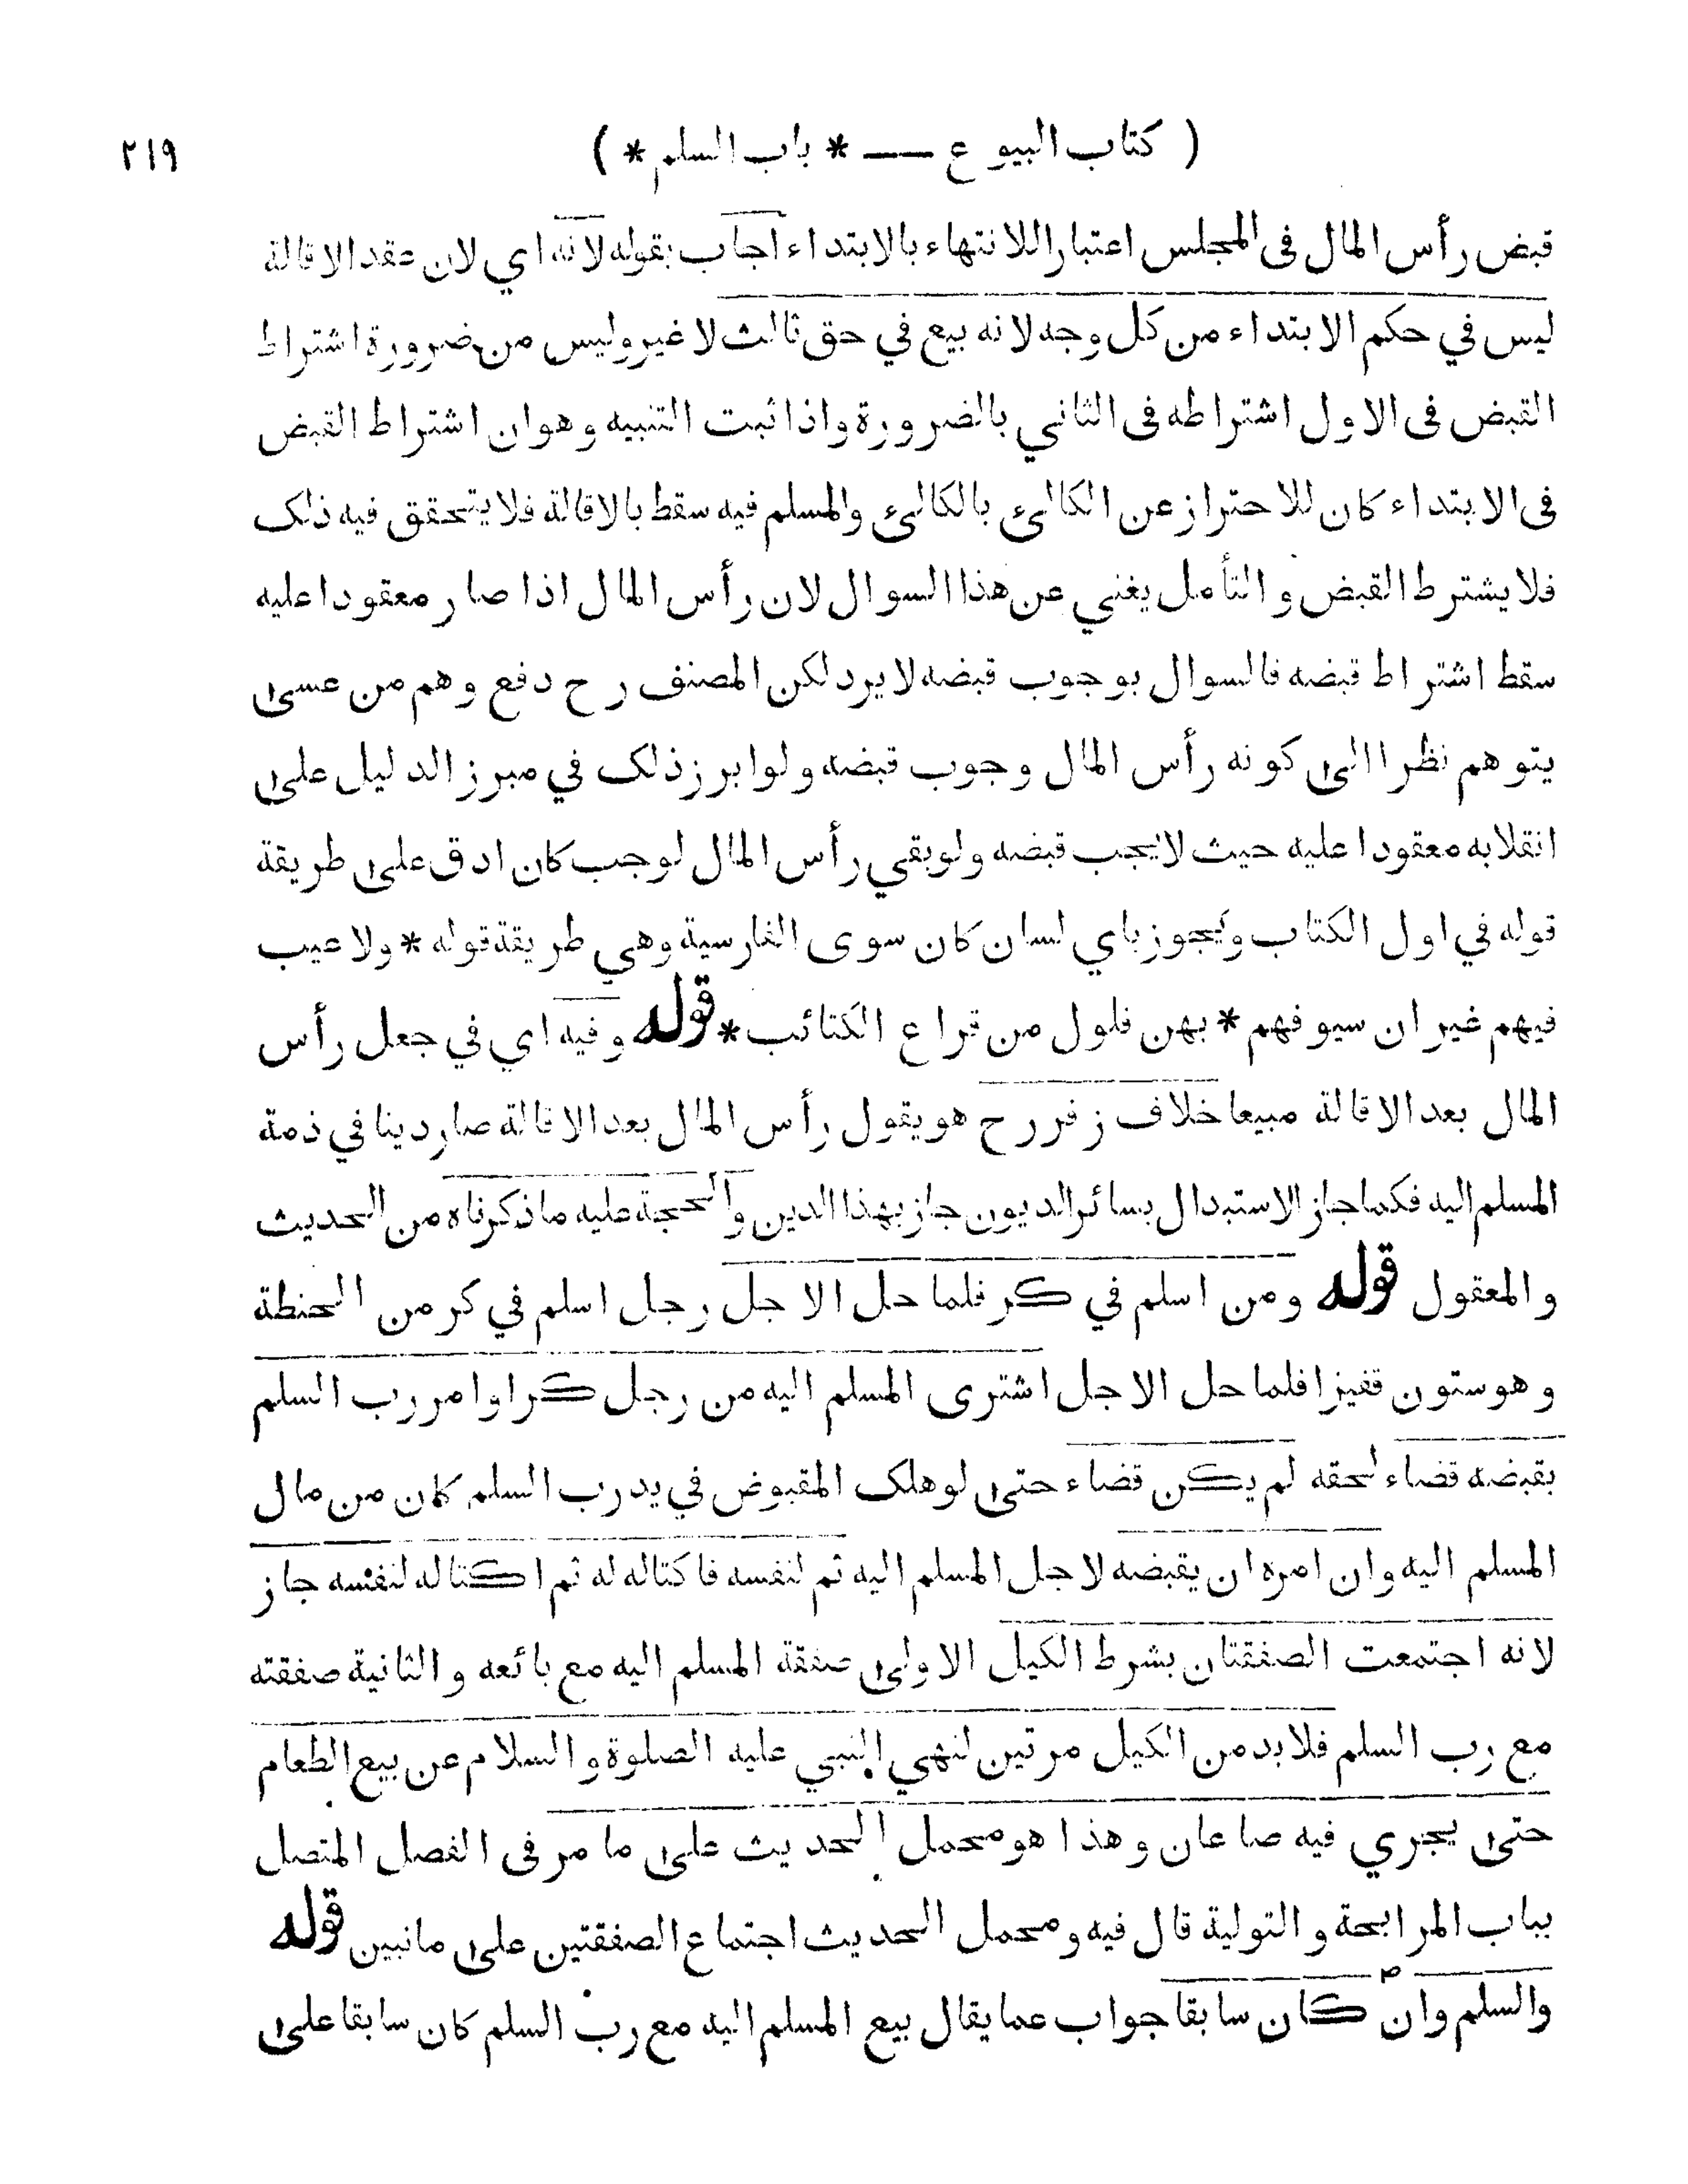 ( كتاب البيوع — * باب السلم * ) ٢١٩
قبض رأس المال فى المجلس اعتبارا للانتهاء بالابتداء اجاب بقوله لانه اي لان عقد الاقالة
ليس في حكم الابتداء من كل وجه لانه بيع في حق ثالث لا غير وليس من ضرورة اشتراط
القبض فى الاول اشتراطه فى الثاني بالضرورة واذا ثبت التنبيه وهو ان اشتراط القبض
فى الابتداء كان للاحتراز عن الكالئ بالكالئ والمسلم فيه سقط بالاقالة فلا يتحقق فيه ذلك
فلا يشترط القبض والتأمل يغني عن هذا السوال لان رأس المال اذا صار معقودا عليه
سقط اشتراط قبضه فالسوال بوجوب قبضه لا يرد لكن المصنف رح دفع وهم من عسى
يتوهم نظرا الى كونه رأس المال وجوب قبضه ولو ابرز ذلك في مبرز الدليل على
انقلابه معقودا عليه حيث لا يجب قبضه ولو بقي رأس المال لوجب كان ادق على طريقة
قوله في اول الكتاب ويجوز باي لسان كان سوى الفارسية وهي طريقة قوله * ولا عيب
فيهم غير ان سيوفهم * بهن فلول من قراع الكتائب * قوله وفيه اي في جعل رأس
المال بعد الاقالة مبيعا خلاف زفر رح هو يقول رأس المال بعد الاقالة صار دينا في ذمة
المسلم اليه فكما جاز الاستبدال بسائر الديون جاز بهذا الدين والحجة عليه ما ذكرناه من الحديث
والمعقول قوله ومن اسلم في كر فلما حل الاجل رجل اسلم في كر من الحنطة
وهو ستون قفيزا فلما حل الاجل اشترى المسلم اليه من رجل كرا وامر رب السلم
بقبضه قضاء لحقه لم يكن قضاء حتى لو هلك المقبوض في يد رب السلم كان من مال
المسلم اليه وان امره ان يقبضه لاجل المسلم اليه ثم لنفسه فاكتاله له ثم اكتاله لنفسه جاز
لانه اجتمعت الصفقتان بشرط الكيل الاولى صفقة المسلم اليه مع بائعه والثانية صفقته
مع رب السلم فلا بد من الكيل مرتين لنهي النبي عليه الصلوة والسلام عن بيع الطعام
حتى يجري فيه صاعان وهذا هو محمل الحديث على ما مر فى الفصل المتصل
بباب المرابحة والتولية قال فيه ومحمل الحديث اجتماع الصفقتين على ما نبين قوله
والسلم وان كان سابقا جواب عما يقال بيع المسلم اليه مع رب السلم كان سابقا على